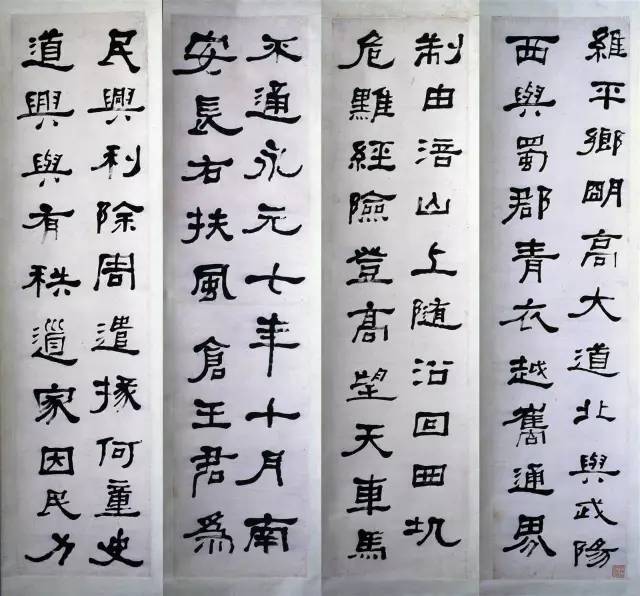 維平鄉明高大道北與武陽
西與蜀郡青衣越嶲通界
制由涪山上随沿回田坑
危難經險登高望天車馬
不通永元七年十月南
安長右扶風倉王君為
民興利除害遣掾何童史
道興與有秩家因民力